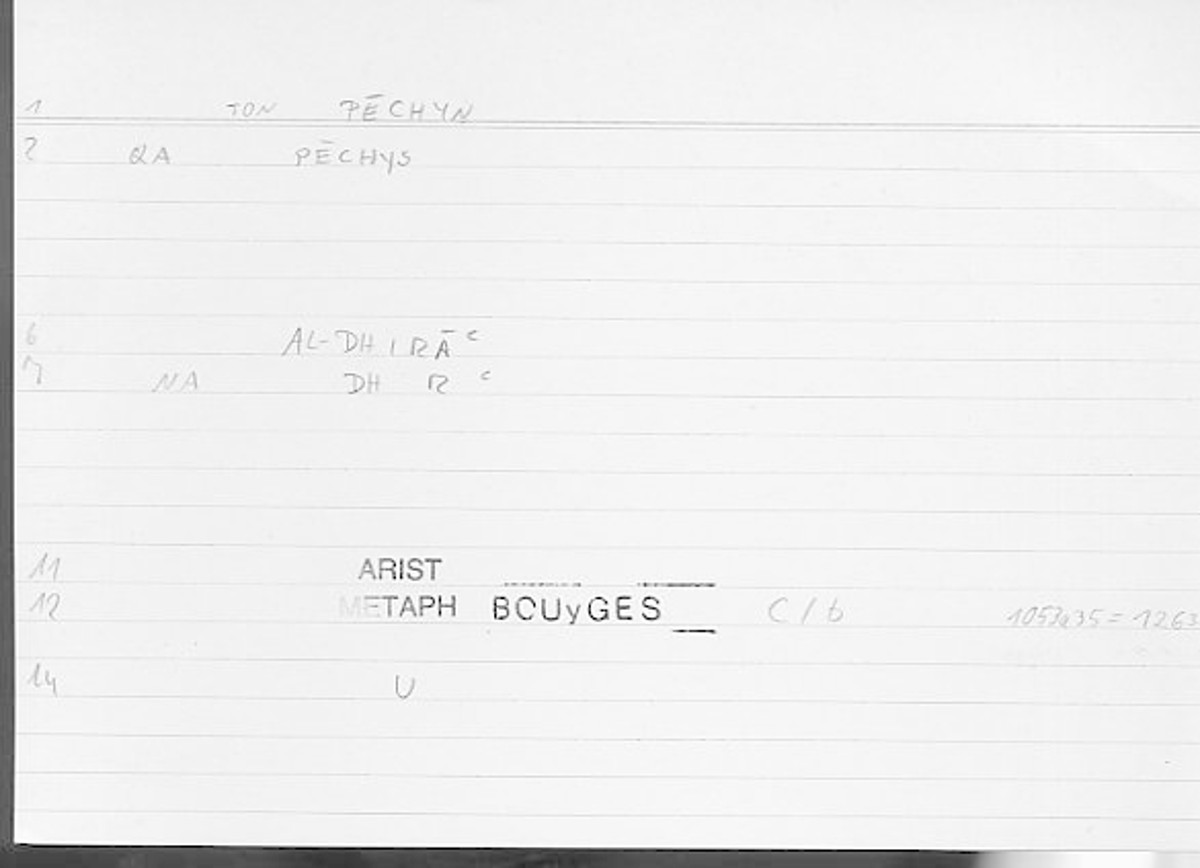 1 TON PĒCHYN
2 QA PĒCHYS
6 AL-DHIRĀc
7 NA DH R c
11 ARIST
12 METAPH BOUyGES C/b 1053a35 = 1263
14 U